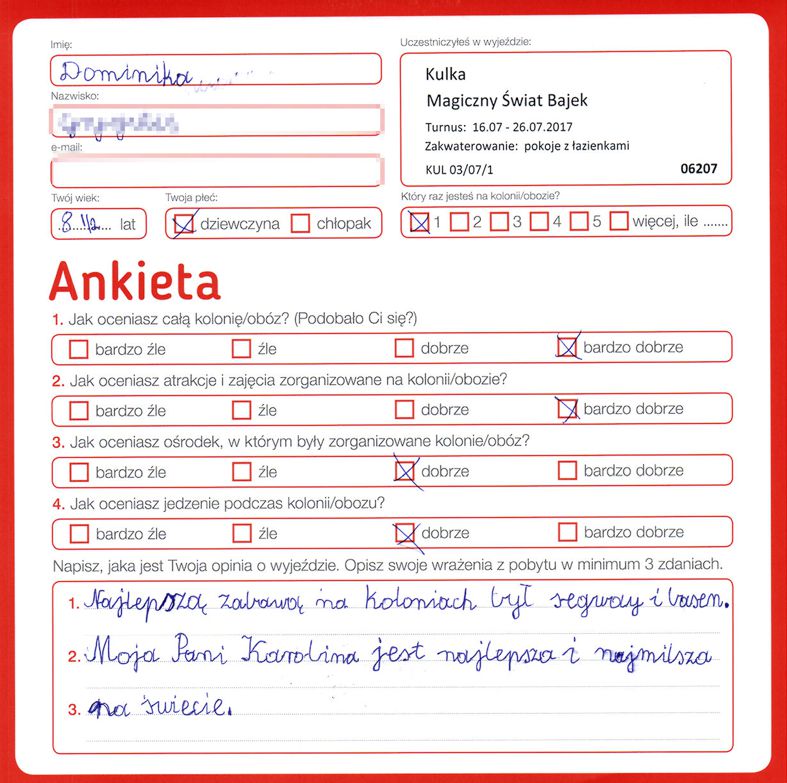 Imię:
Dominika
Nazwisko:
e-mail:
Twój wiek:
8 1/2 lat
Twoja płeć:
dziewczyna chłopak
Uczestniczyłeś w wyjeździe:
Kulka
Magiczny Świat Bajek
Turnus: 16.07 - 26.07.2017
Zakwaterowanie: pokoje z łazienkami
KUL 03/07/1 06207
Który raz jesteś na kolonii/obozie?
1 2 3 4 5 więcej, ile .......
Ankieta
1. Jak oceniasz całą kolonię/obóz? (Podobało Ci się?)
bardzo źle źle dobrze bardzo dobrze
2. Jak oceniasz atrakcje i zajęcia zorganizowane na kolonii/obozie?
bardzo źle źle dobrze bardzo dobrze
3. Jak oceniasz ośrodek, w którym były zorganizowane kolonie/obóz?
bardzo źle źle dobrze bardzo dobrze
4. Jak oceniasz jedzenie podczas kolonii/obozu?
bardzo źle źle dobrze bardzo dobrze
Napisz, jaka jest Twoja opinia o wyjeździe. Opisz swoje wrażenia z pobytu w minimum 3 zdaniach.
1. Najlepszą zabawą na koloniach był segway i basen.
2. Moja Pani Karolina jest najlepsza i najmilsza
3. na świecie.